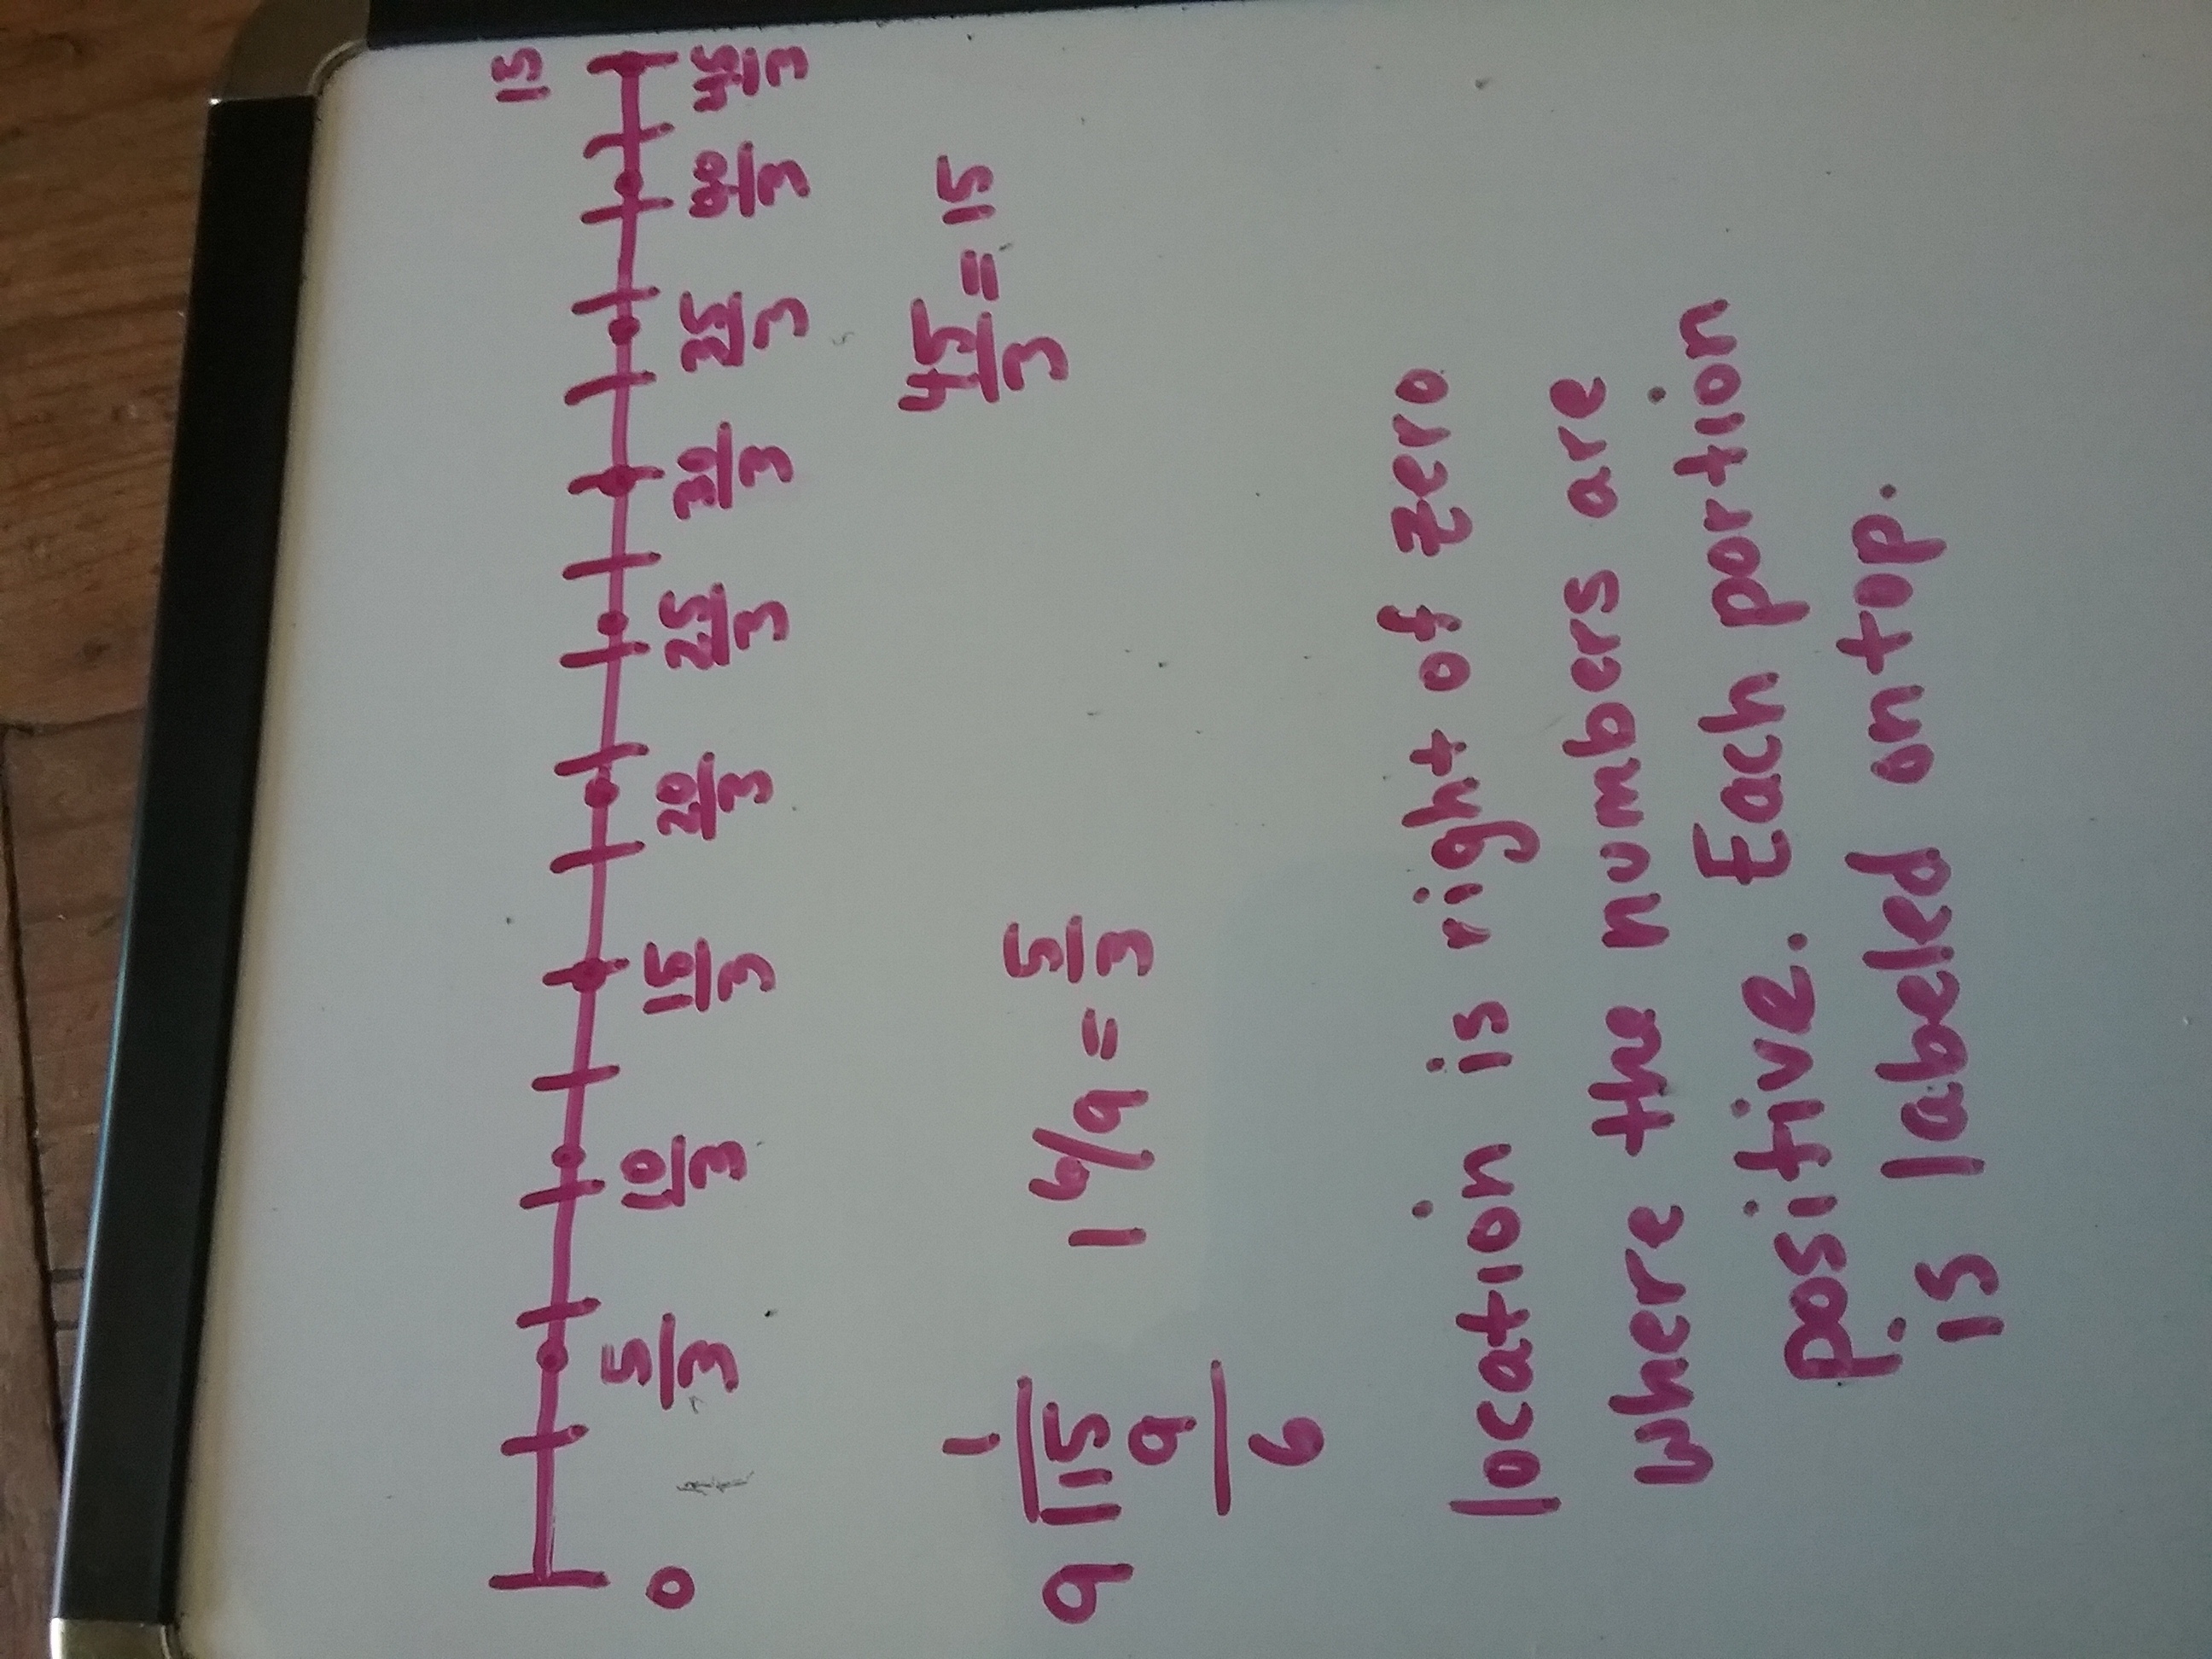 15
0 5/3 10/3 15/3 20/3 25/3 30/3 35/3 40/3 45/3
1
9 15
9
6
1 6/9 = 5/3
45/3 = 15
location is right of zero
where the numbers are
positive. Each portion
is labeled on top.